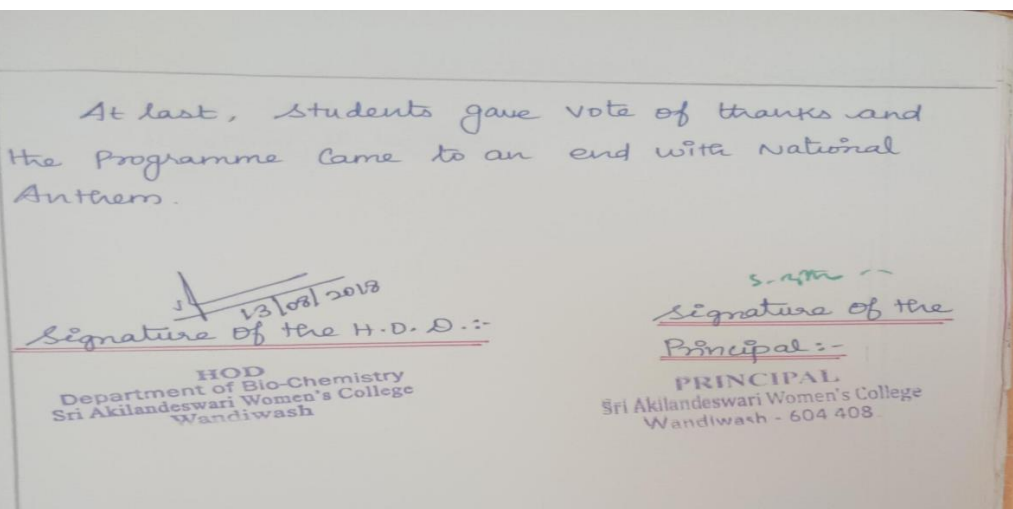 At last, Students gave vote of thanks and
the Programme Came to an end with National
Anthem.
13/08/2018
Signature of the H.O.D.:-
HOD
Department of Bio-Chemistry
Sri Akilandeswari Women's College
Wandiwash
Signature of the
Principal:-
PRINCIPAL
Sri Akilandeswari Women's College
Wandiwash - 604 408.